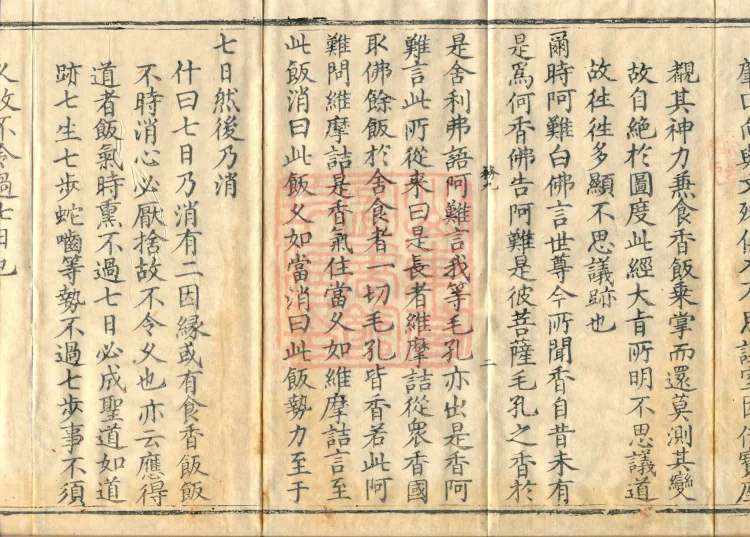 肇曰
覩其神力兼食香飯乗掌而還莫測其變
故自絶於圖度此經大㫖所明不思議道
故往往多顯不思議跡也
爾時阿難白佛言世尊今所聞香自昔未有
是爲何香佛告阿難是彼菩薩毛孔之香於
二
是舍利弗語阿難言我等毛孔亦出是香阿
難言此所從来曰是長者維摩詰從衆香國
取佛餘飯於舍食者一切毛孔皆香若此阿
難問維摩詰是香氣住當久如維摩詰言至
此飯消曰此飯久如當消曰此飯勢力至于
七日然後乃消
什曰七日乃消有二因縁或有食香飯飯
不時消心必厭捨故不令久也亦云應得
道者飯氣時熏不過七日必成聖道如道
跡七生七歩蛇嚙等勢不過七歩事不須
久故不令過七日也